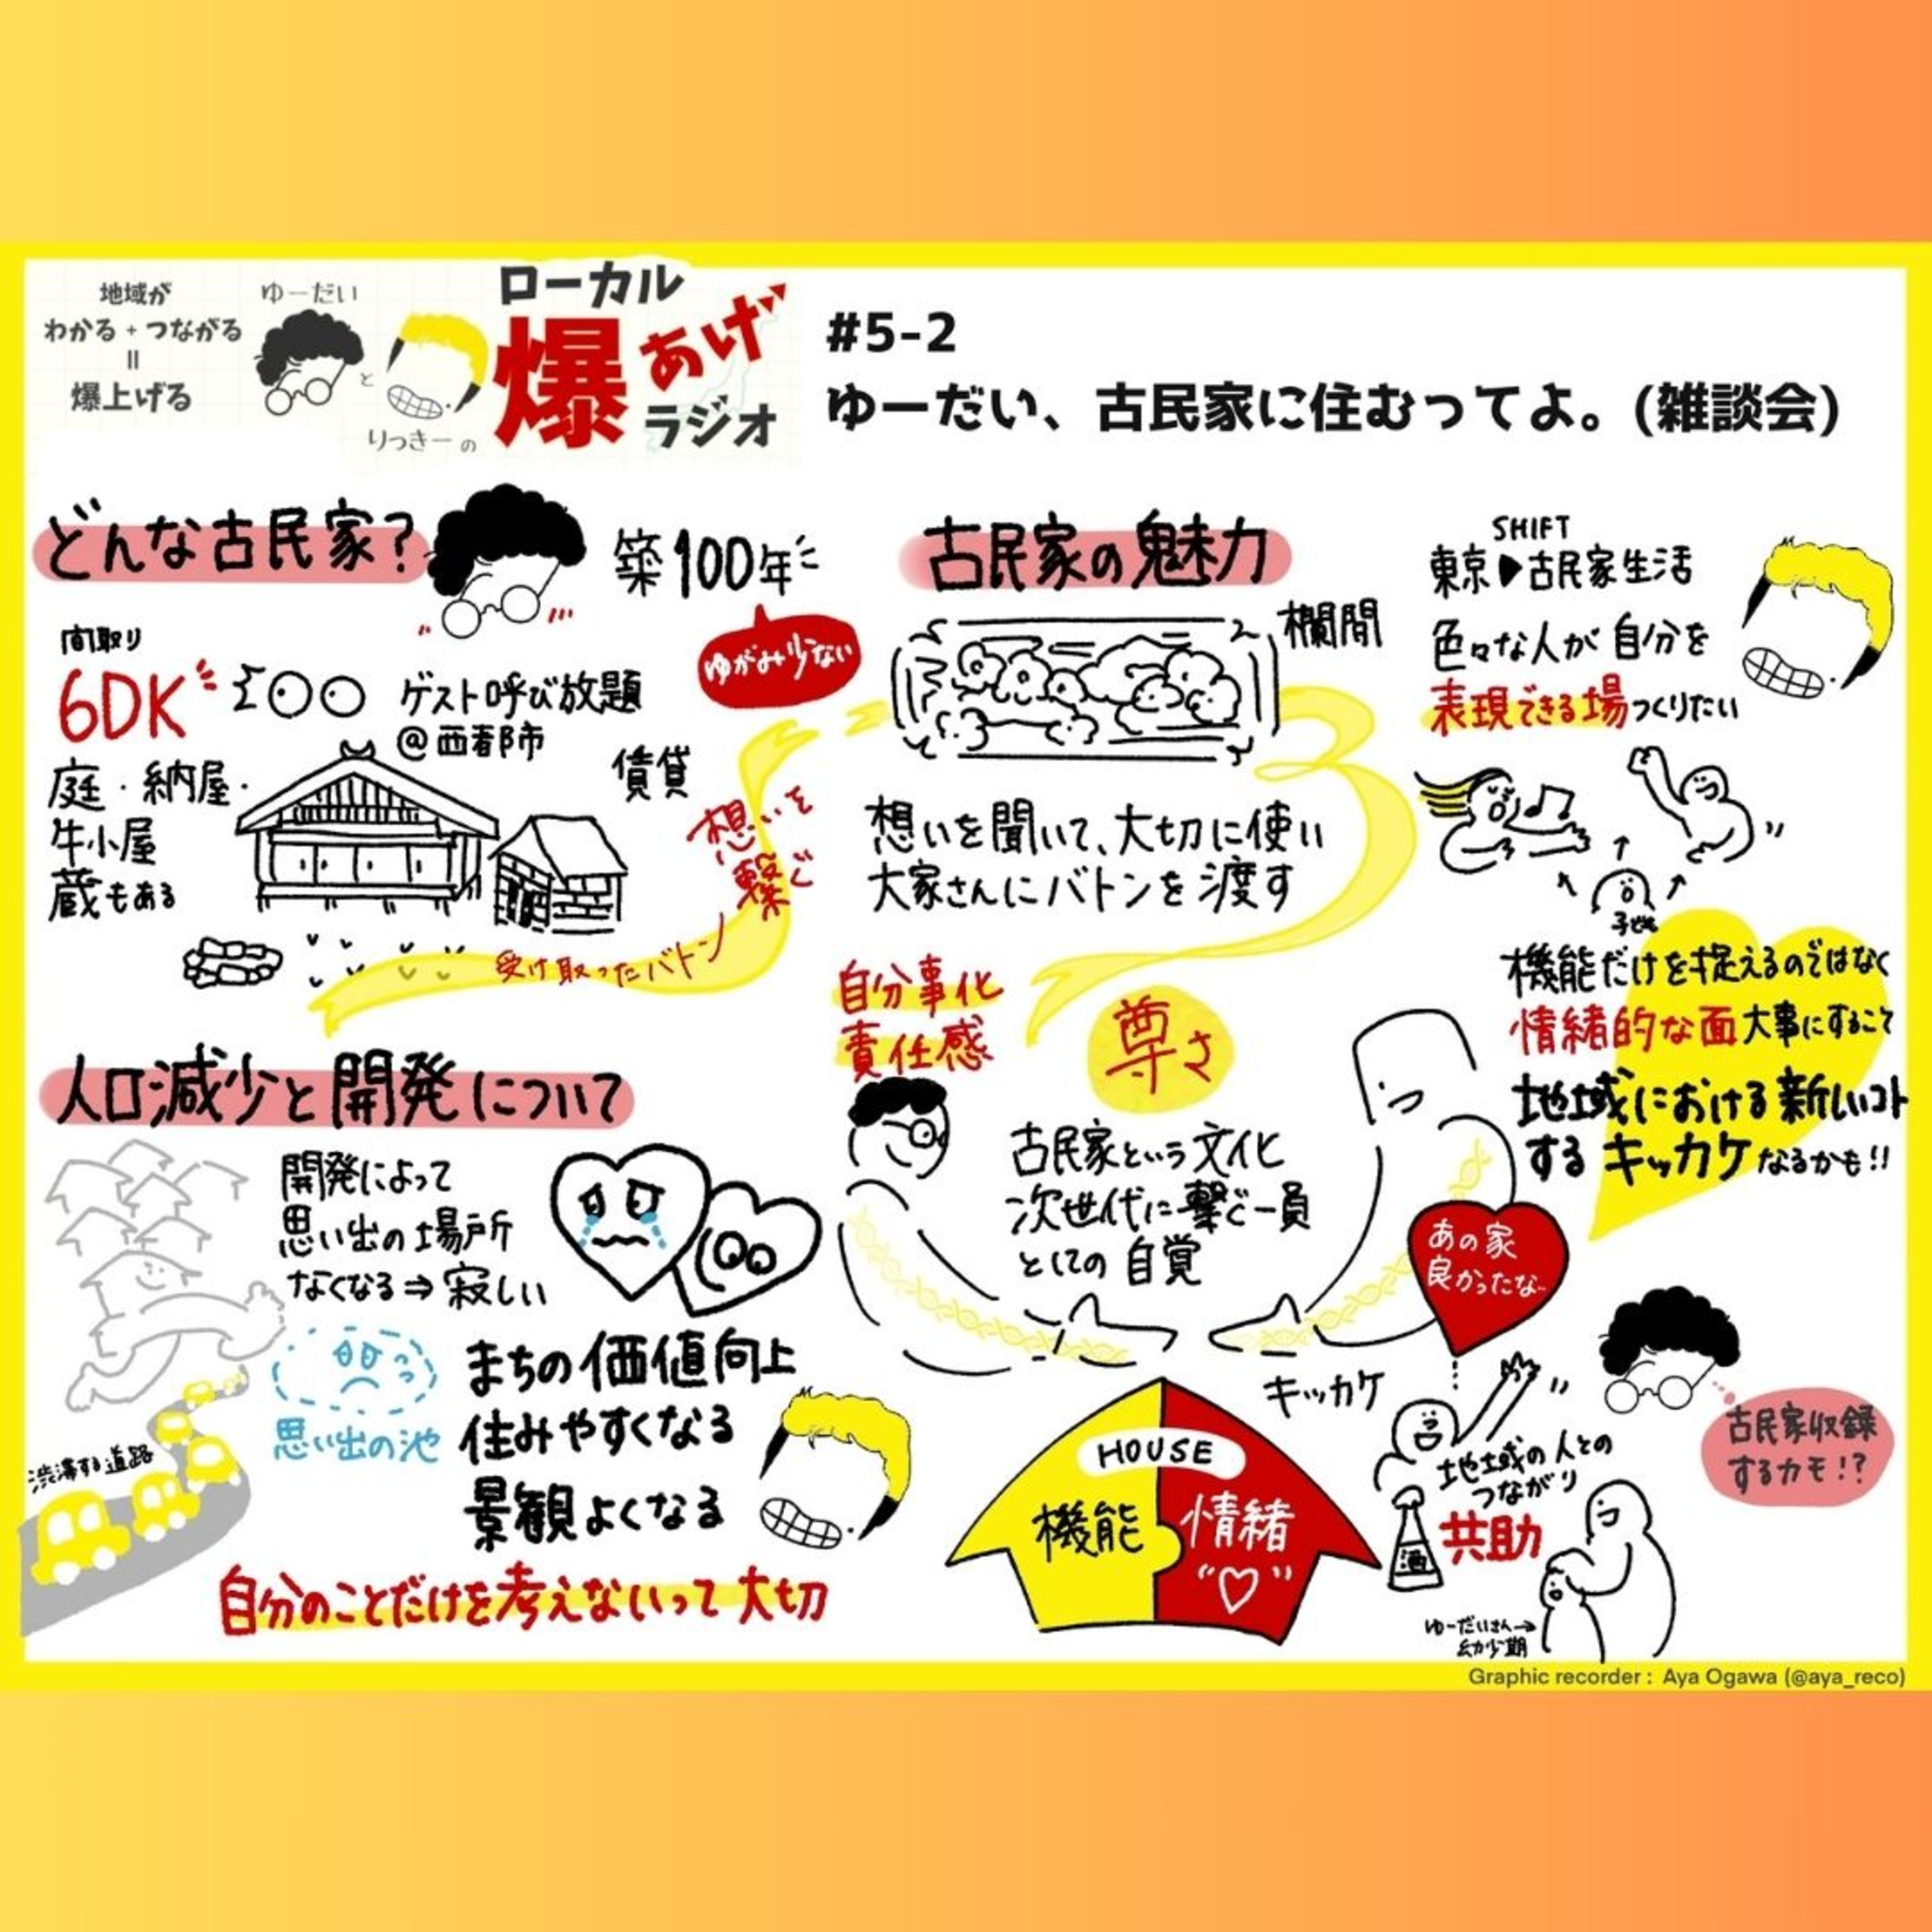 地域が
わかる + つながる
=
爆上げる
ゆーだい
と
りっきー の
ローカル
爆あげ
ラジオ
#5-2
ゆーだい、古民家に住むってよ。(雑談会)
どんな古民家?
築100年
ゆがみ少ない
間取り
6DK
ゲスト呼び放題
@西都市
庭・納屋・
牛小屋
蔵もある
賃貸
想いを
繋ぐ
受け取ったバトン
古民家の魅力
欄間
想いを聞いて、大切に使い
大家さんにバトンを渡す
SHIFT
東京▶古民家生活
色々な人が自分を
表現できる場つくりたい
子ども
自分事化
責任感
尊さ
古民家という文化
次世代に繋ぐ一員
としての自覚
機能だけを捉えるのではなく
情緒的な面大事にすること
地域における新しいコト
するキッカケなるかも!!
あの家
良かったな…
キッカケ
HOUSE
機能
情緒
"♡"
地域の人との
つながり
共助
酒
ゆーだいさん→
幼少期
古民家収録
するカモ!?
人口減少と開発について
開発によって
思い出の場所
なくなる⇒寂しい
思い出の池
渋滞する道路
まちの価値向上
住みやすくなる
景観よくなる
自分のことだけを考えないって大切
Graphic recorder : Aya Ogawa (@aya_reco)